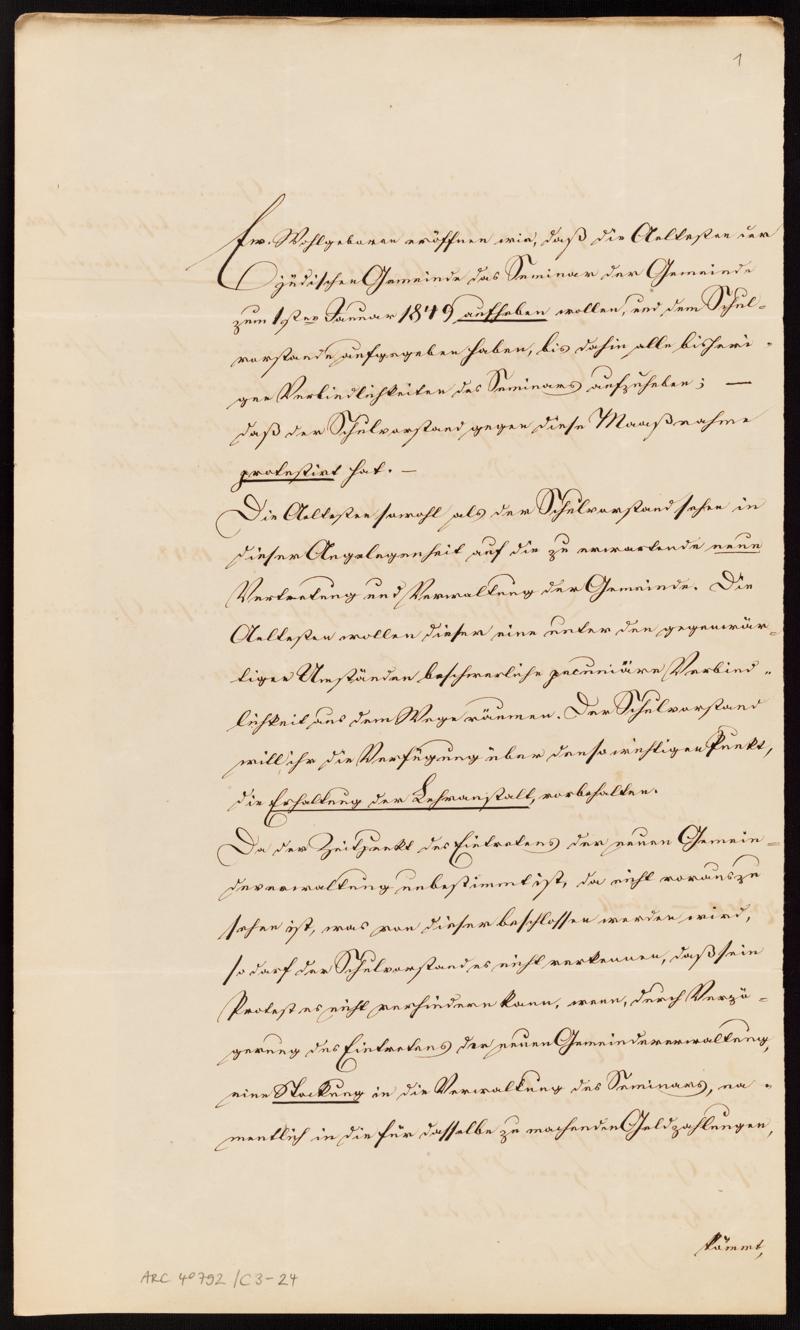 1
Ew. Wohlgeboren eröffnen wir, daß die Aeltesten der
jüdischen Gemeinde das Seminar der Gemeinde
zum 1sten Januar 1849 aufheben wollen, und dem Schul-
vorstande aufgegeben haben, bis dahin alle bisheri-
gen Verbindlichkeiten des Seminars aufzuheben; —
daß der Schulvorstand gegen diese Maaßnahme
protestirt hat. —
Die Aeltesten sowohl als der Schulvorstand sehen in
dieser Angelegenheit auf die zu erwartende neue
Vertretung und Verwaltung der Gemeinde. Die
Aeltesten wollen dieser eine unter den gegenwär-
tigen Umständen beschwerliche pecuniäre Verbind-
lichkeit aus dem Wege räumen. Der Schulvorstand
will ihr die Verfügung über den so wichtigen Punkt,
die Erhaltung der Lehranstalt, vorbehalten.
Da der Zeitpunkt des Eintretens der neuen Gemein-
deverwaltung unbestimmt ist, da nicht vorauszu
sehen ist, was von dieser beschlossen werden wird,
so darf der Schulvorstand es nicht verkennen, daß sein
Protest es nicht verhindern kann, wenn, durch Verzö-
gerung des Eintretens der neuen Gemeindeverwaltung,
eine Stockung in die Verwaltung des Seminars, na-
mentlich in die für dasselbe zu machenden Geldzahlungen,
kömmt,
ARC 4° 792 /C3-24